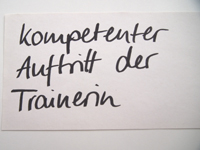 Kompetenter
Auftritt der
Trainerin